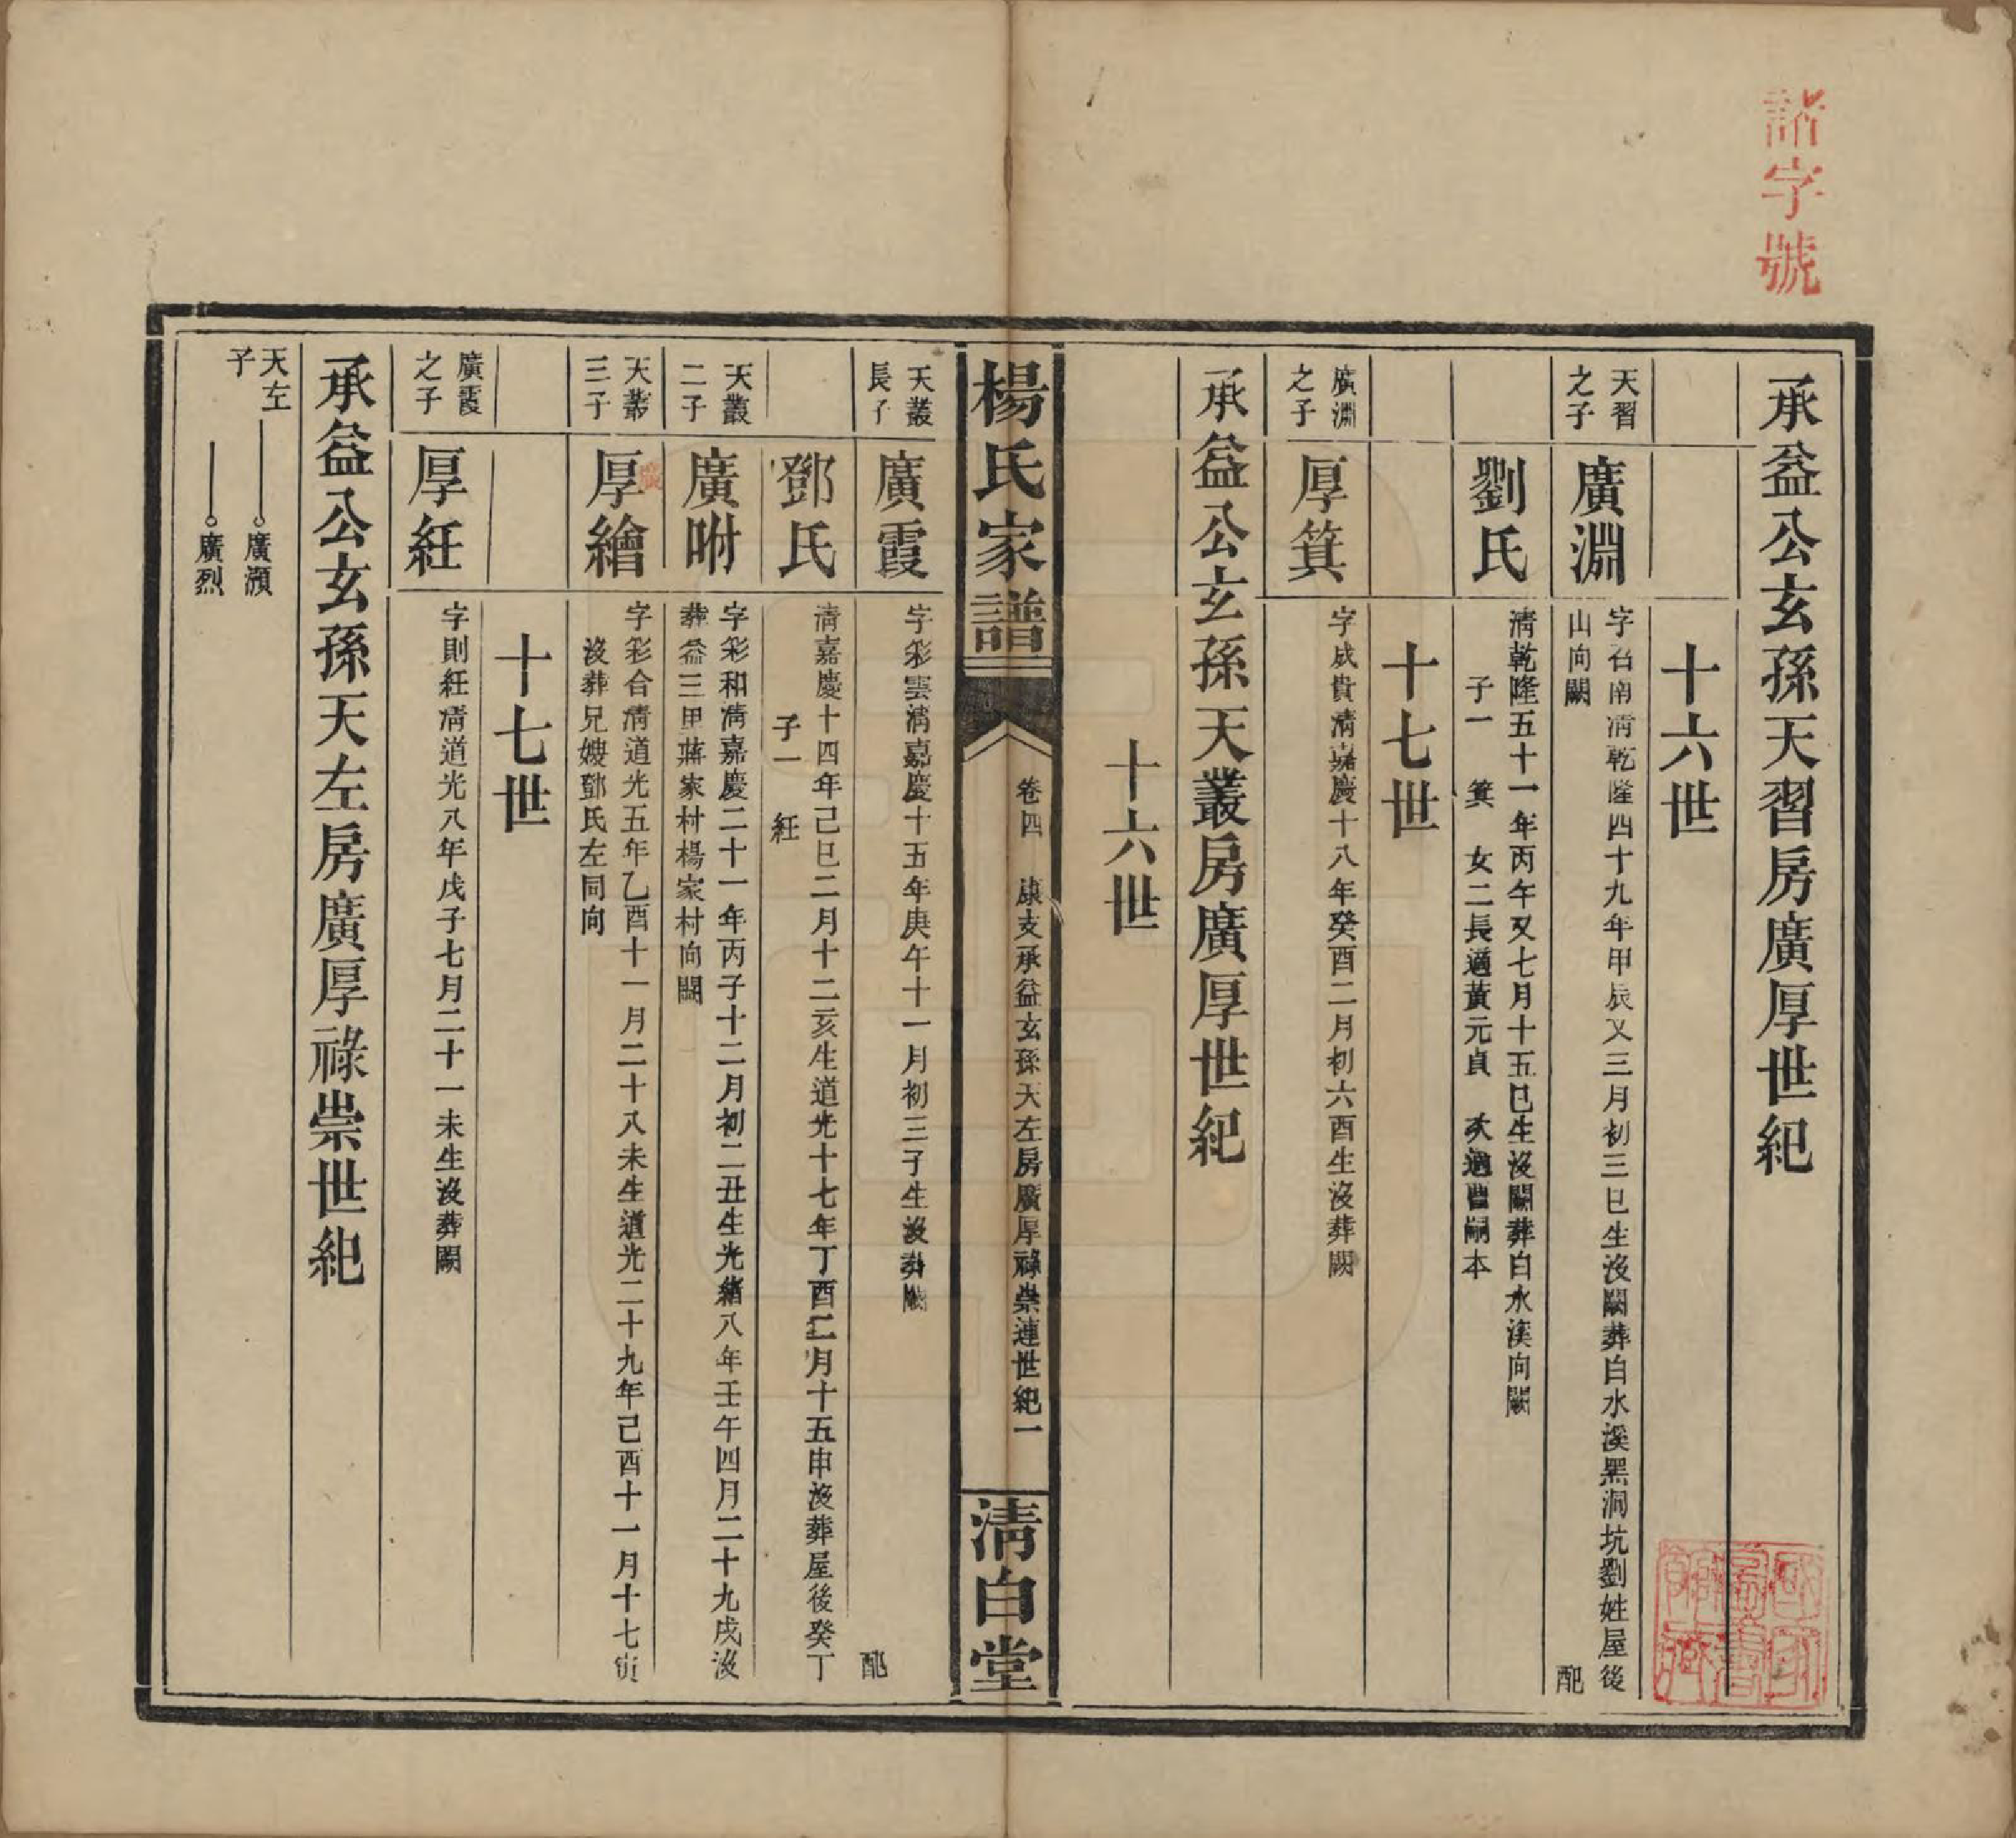 諾字號
承益公玄孫天習房廣厚世紀
十六世
天習之子
廣淵
字召南清乾隆四十九年甲辰又三月初三巳生沒闕葬白水溪黑洞坑劉姓屋後
山向闕 配
劉氏
清乾隆五十一年丙午又七月十五巳生沒闕葬白水溪向闕
子一 箕 女二長適黃元貞 次適曹嗣本
十七世
廣淵之子
厚箕
字成貴清嘉慶十八年癸酉二月初六酉生沒葬闕
承益公玄孫天叢房廣厚世紀
十六世
楊氏家譜
卷四 康支承益玄孫天左房廣厚祿崇連世紀一
清白堂
天叢長子
廣霞
字彩雲清嘉慶十五年庚午十一月初三子生沒葬闕 配
鄧氏
清嘉慶十四年己巳二月十二亥生道光十七年丁酉二月十五申沒葬屋後癸丁
子一 紝
天叢二子
廣咐
字彩和清嘉慶二十一年丙子十二月初二丑生光緒八年壬午四月二十九戌沒
葬益三里蔣家村楊家村向闕
天叢三子
厚繪
廣
字彩合清道光五年乙酉十一月二十八未生道光二十九年己酉十一月十七寅
沒葬兄嫂鄧氏左同向
十七世
廣霞之子
厚紝
字則紝清道光八年戊子七月二十一未生沒葬闕
承益公玄孫天左房廣厚祿崇世紀
天左子
廣灝
廣烈